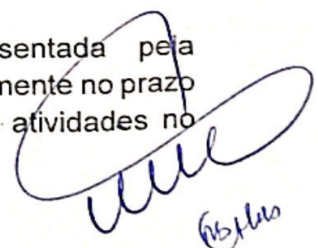 sentada pela
mente no prazo
atividades no